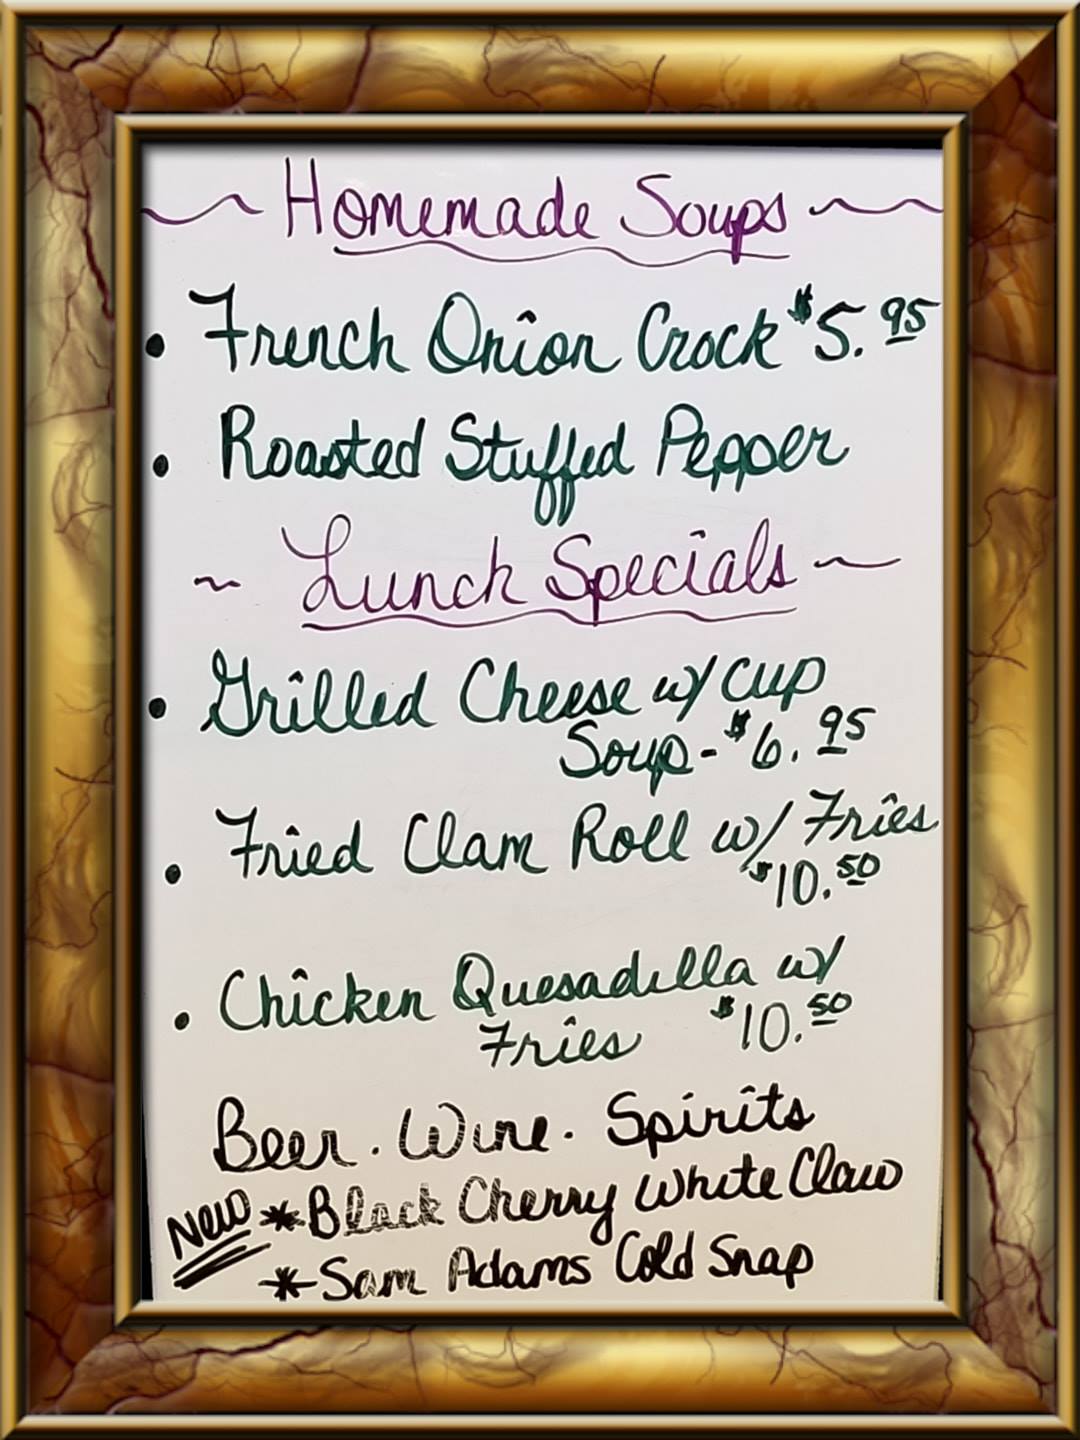 ~ Homemade Soups ~
• French Onion Crock $5.95
• Roasted Stuffed Pepper
~ Lunch Specials ~
• Grilled Cheese w/ cup
Soup - $6.95
• Fried Clam Roll w/ Fries
$10.50
• Chicken Quesadilla w/
Fries $10.50
Beer . Wine . Spirits
New * Black Cherry White Claw
* Sam Adams Cold Snap